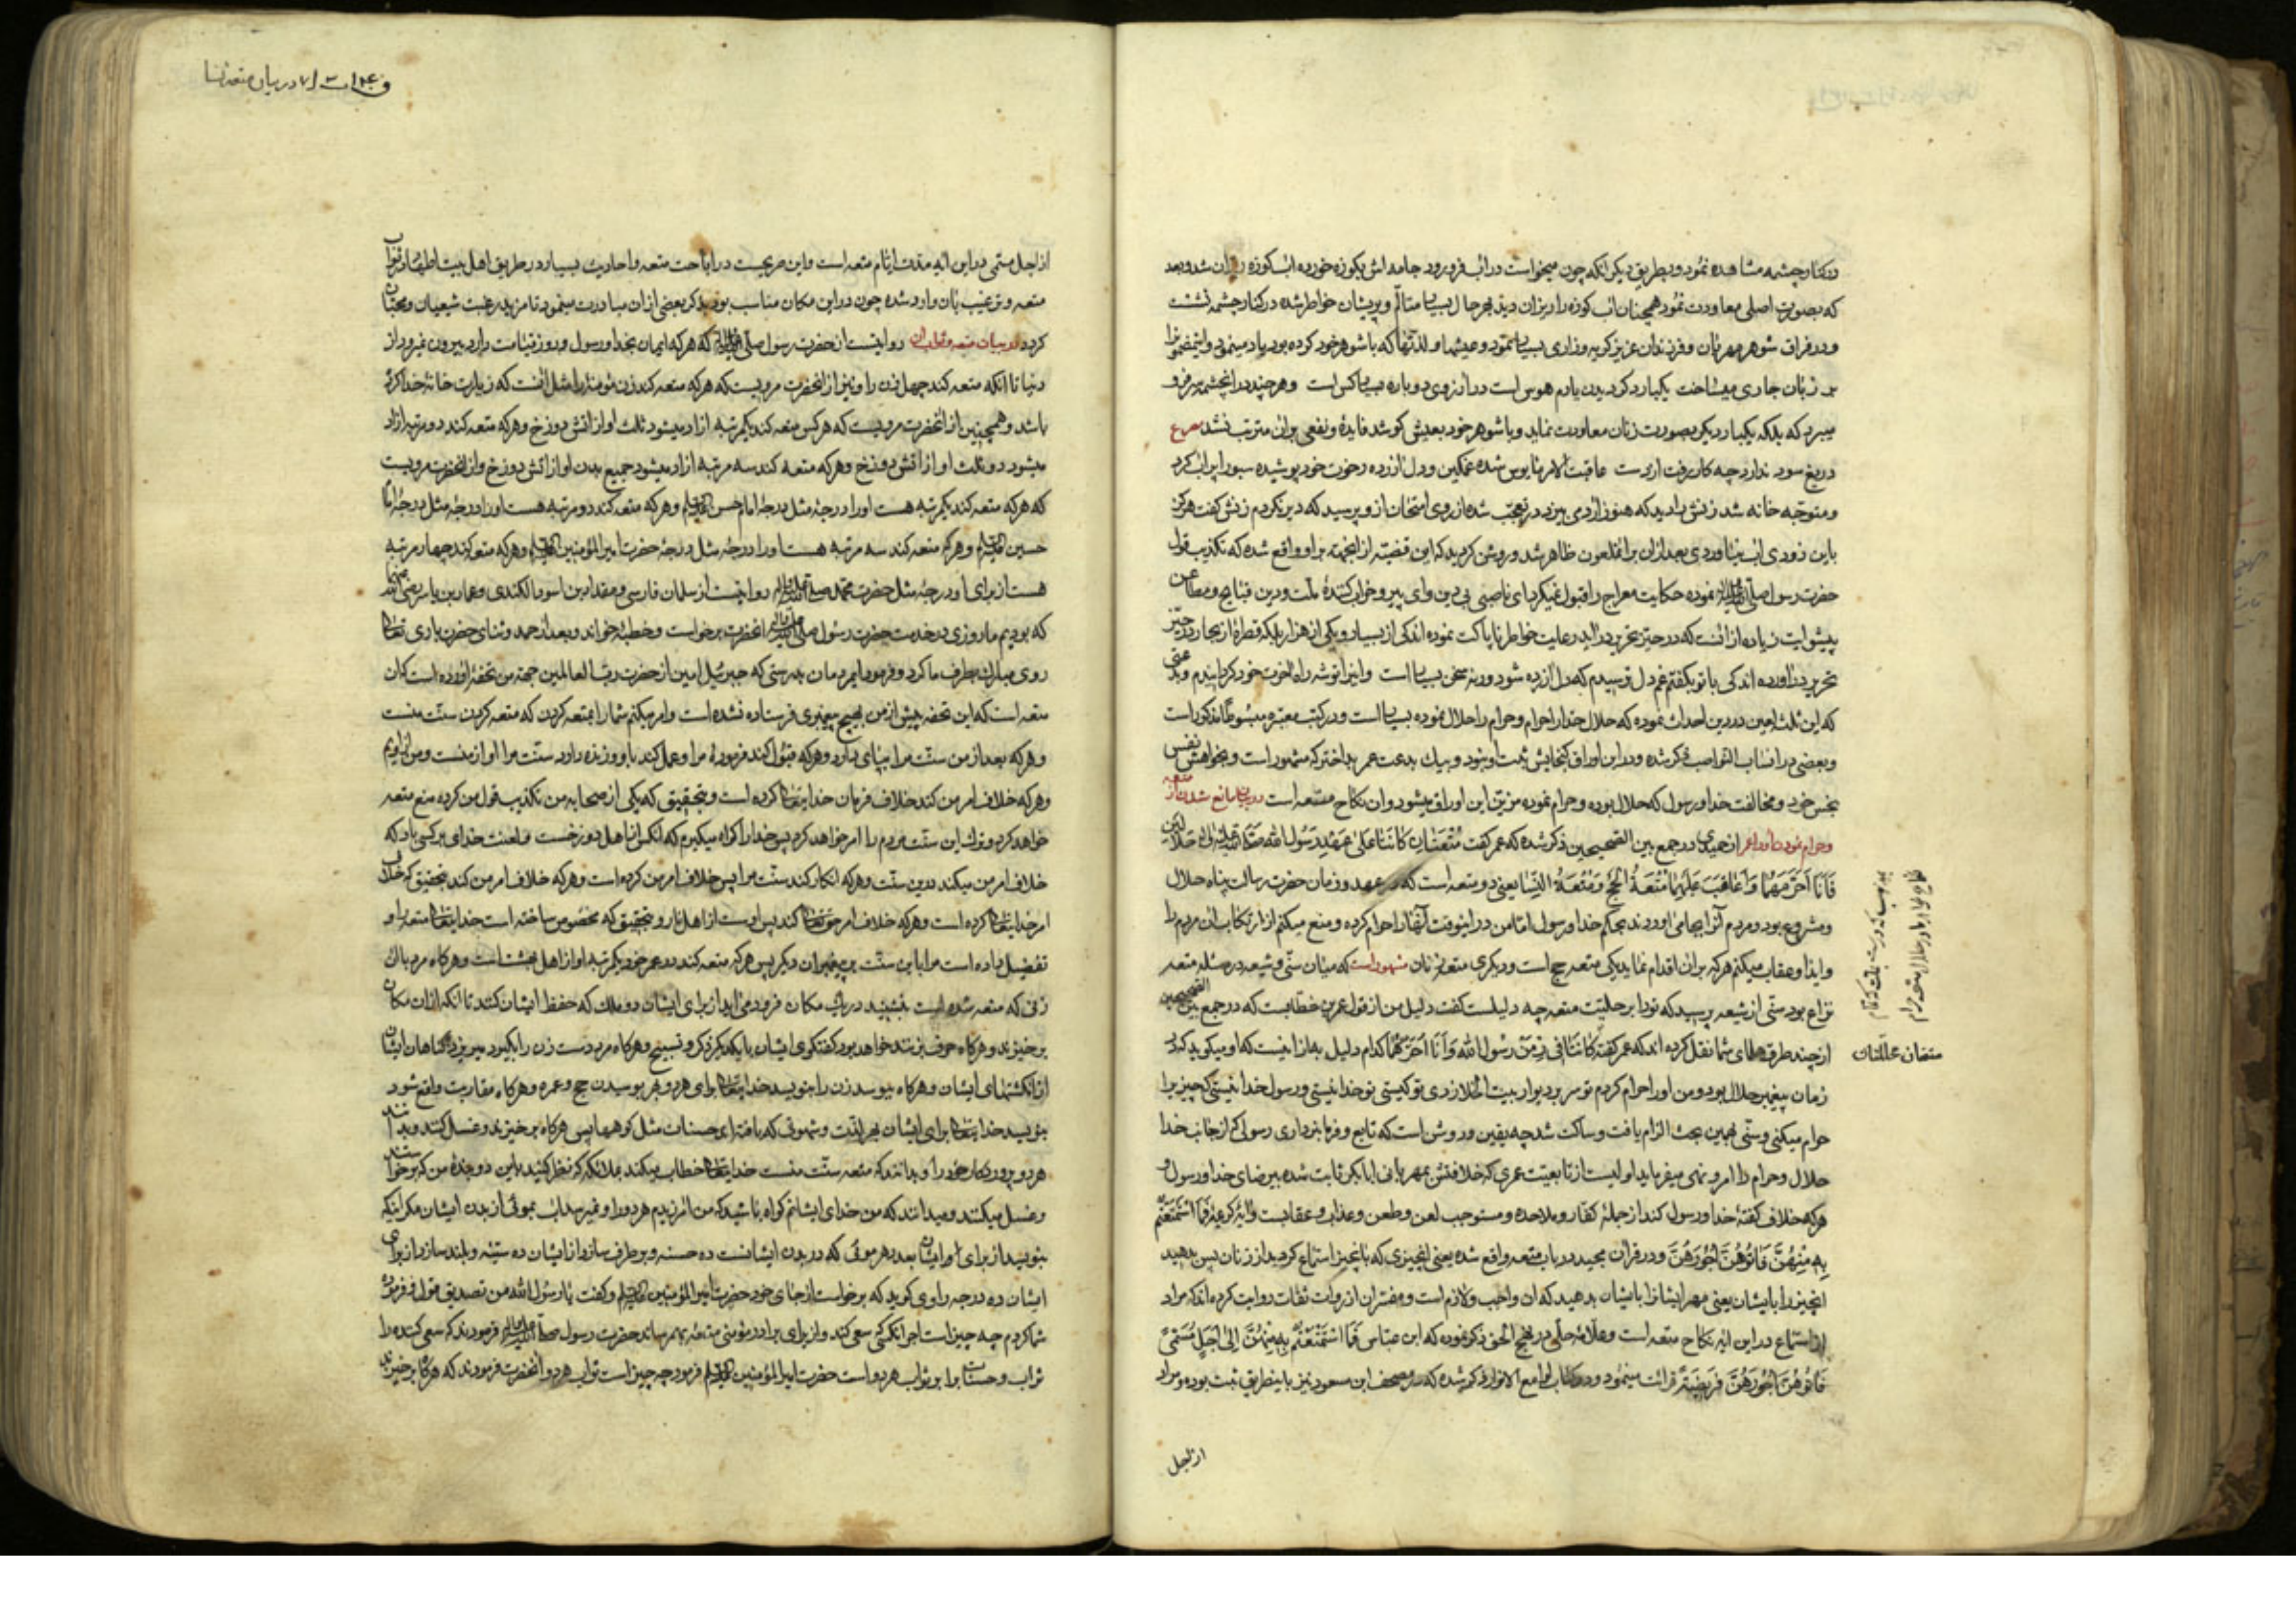 درکنار چشمه مشاهده نمود و بطریق دیگر انکه چون میخواست در اب فرو رود جامه اش بکوزه خورده اب کوزه ریزان شد و بعد
که بصورت اصلی معاودت نمود همچنان اب کوزه را ریزان دید بهر حال بسیار متالم و پریشان خاطر شده در کنار چشمه نشست
و در فراق شوهر مهربان و فرزندان عزیز کریه و زاری بسیار نمود و عیشها و لذتها که با شوهر خود کرده بود یاد مینمود و این
بر زبان جاری میساخت یکبار دکر دیدن یارم هوس است در ارزوی دوباره بسیار کس است و هر چند در ان چشمه سر فرو
میبرد که بلکه یکبار دیکر بصورت زنان معاودت نماید و با شوهر خود بعیش کوشد فایدۀ و نفعی بران مترتب نشد مصرع
دریغ سود ندارد چه کار رفت از دست عاقبت الامر مایوس شده غمکین و دل ازرده رخوت خود پوشیده سبو را پر اب کرد
و متوجه خانه شد زنش را دید که هنوز ارد می بیزد در تعجب شده از روی امتحان از و پرسید که دیر نکردم زنش کفت هرکز
باین زودی اب نیاوردی بعد ازان بر انملعون ظاهر شد و روشن کردید که این قضیه از انجهت بر او واقع شده که تکذیب قول
حضرت رسول صلی الله علیه واله نموده حکایت معراج را قبول نمیکرد ای ناصبی بی دین و ای پیرو خراب کنندۀ ملت و دین قبایح و مطاعن
پیشوایت زیاده از انست که در حیز تحریر در اید رعایت خواطر نا پاکت نموده اندکی از بسیار و یکی از هزار بلکه قطرۀ از بحار در حیز
تحریر در اورده اندکی با تو بکفتم غم دل ترسیدم که دل ازرده شود ورنه سخن بسیار است و این را توشه راه اخرت خود کردانیدم و بدعتی
که این ثلثه لعین در دین احداث نموده که حلال خدا را حرام و حرام را حلال نموده بسیار است و در کتب معتبره مبسوطا مذکور است
و بعضی در انساب النواصب ذکر شده و در این اوراق کنجایش ثبت او نبود و بیک بدعت عمر بد اختر که مشهور است و بخواهش نفس
نجس خود و مخالفت خدا و رسول که حلال بوده و حرام نموده مزین این اوراق میشود و ان نکاح متعه است در بیان مانع شدن از متعه
و حرام نمودن او را عمر از حمیدی در جمع بین الصحیحین ذکر شده که عمر کفت مُتعَتانِ کانَتا عَلی عَهدِ رَسُولِ الله صلی الله علیه واله حلالین
فَاَنَا اُحَرِّمهُما وَ اُعاقِبُ عَلَیهِما مُتعَةُ الحَجِّ وَ مُتعَةُ النِّساءِ یعنی دو متعه است که در عهد و زمان حضرت رسالت پناه حلال
و مشروع بود و مردم انرا بجا می اوردند بحکم خدا و رسول اما من در اینوقت انها را حرام کرده و منع میکنم از ارتکاب ان مردم را
و ایذا و عقاب میکنم هر که بران اقدام نماید یکی متعه حج است و دیکری متعه زنان مشهور است که میان سنی و شیعه در مسئله متعه
نزاع بود سنی از شیعه پرسید که تو را بر حلیت متعه چه دلیلست کفت دلیل من از قول عمر بن خطابست که در جمع بین الصحیحین
از چند طرق علمای شما نقل کرده اند که عمر کفت کانَتا فی زَمَنِ رَسُولِ الله وَ اَنَا اُحَرِّمهُما کدام دلیل به از اینست که او میکوید که در
زمان پیغمبر حلال بود و من او را حرام کردم تو سر بر دیوار بیت الخلا زدی تو کیستی تو خدا نیستی و رسول خدا نیستی که چیز را
حرام میکنی و سنی بهمین بحث الزام یافت و ساکت شد چه یقین و روشن است که تابع و فرمانبرداری رسول که از جانب خدا
حلال و حرام را امر و نهی میفرماید اولیست از تابعیت عمری که خلافتش بمهربانی ابابکر ثابت شده بیرضای خدا و رسول و
هر که خلاف کفتۀ خدا و رسول کند از جملۀ کفار و ملاحده و مستوجب لعن و طعن و عذاب و عقابست و ایۀ کریمۀ فَمَا اسْتَمتَعتُم
بِهِ مِنهُنَّ فَاتُوهُنَّ اُجُورَهُنَّ و در قران مجید در باب متعه واقع شده یعنی انچیزی که بانچیز استمتاع کردید از زنان پس بدهید
انچیز را بایشان یعنی مهر ایشانرا بایشان بدهید که ان واجب و لازم است و مفسران از روات ثقات روایت کرده اند که مراد
از استمتاع در این ایه نکاح متعه است و علامه حلی در نهج الحق ذکر نموده که ابن عباس فَمَا استَمتَعتُم بِهِ مِنهُنَّ اِلی اَجَلٍ مُسَمّیً
فَاتُوهُنَّ اُجُورَهُنَّ فَرِیضَةً قرائت مینمود و در کتاب لوامع الانوار ذکر شده که در مصحف ابن مسعود نیز باینطریق ثبت بوده و مراد
ازاجل
متعتان حلالتان
در بیان متعه نسا
از اجل مسمی در این ایه مدت ایام متعه است و این صریحست در اباحت متعه و احادیث بسیار در طریق اهل بیت اطهار در ثواب
متعه و ترغیب بان وارد شده چون در این مکان مناسب بود بذکر بعضی ازان مبادرت مینمود تا مزید رغبت شیعیان و محبان
کردد در بیان متعه و ثواب ان روایتست از حضرت رسول صلی الله علیه واله که هر که ایمان بخدا و رسول و بروز قیامت دارد بیرون نمیرود از
دنیا تا انکه متعه کند چهل زن را و نیز از انحضرت مرویست که هر که متعه کند زن مومنه را مثل انست که زیارت خانۀ خدا کرده
باشد و همچنین از انحضرت مرویست که هر کس متعه کند یکمرتبه ازاد میشود ثلث او از اتش دوزخ و هر که متعه کند دو مرتبه ازاد
میشود دو ثلث او از اتش دوزخ و هر که متعه کند سه مرتبه ازاد میشود جمیع بدن او از اتش دوزخ و از انحضرت مرویست
که هر که متعه کند یکمرتبه هست او را درجۀ مثل درجۀ امام حسن علیه السلام و هر که متعه کند دو مرتبه هست او را درجۀ مثل درجۀ امام
حسین علیه السلام و هر که متعه کند سه مرتبه هست او را درجۀ مثل درجۀ حضرت امیر المؤمنین علیه السلام و هر که متعه کند چهار مرتبه
هست از برای او درجۀ مثل حضرت محمد صلی الله علیه واله روایتست از سلمان فارسی و مقداد بن اسود الکندی و عمار بن یاسر رضی الله عنهم
که بودیم ما روزی در خدمت حضرت رسول صلی الله علیه واله انحضرت برخواست و خطبۀ خواند و بعد از حمد و ثنای حضرت باری تعالی
روی مبارک بطرف ما کرد و فرمود ایمردمان بدرستی که جبرئیل امین از حضرت رب العالمین جهة من تحفۀ اورده است که ان
متعه است که این تحفه پیش از من بهیچ پیغمبری فرستاده نشده است و امر میکنم شما را بمتعه کردن که متعه کردن سنت منست
و هر که بعد از من سنت مرا بپای دارد و هر که قبول کند فرمودۀ مرا و عمل کند باو و زنده دارد سنت مرا او از منست و من از اویم
و هر که خلاف امر من کند خلاف فرمان خدایتعالی کرده است و بتحقیق که یکی از صحابه من تکذیب قول من کرده منع متعه
خواهد کرد و ترک این سنت مردم را امر خواهد کرد پس خدا را کواه میکیرم که انکس از اهل دوزخست و لعنت خدای بر کسی باد که
خلاف امر من میکند در این سنت و هر که انکار کند سنت مرا پس خلاف امر من کرده است و هر که خلاف امر من کند بتحقیق که خلاف
امر خدایتعالی کرده است و هر که خلاف امر حق تعالی کند پس اوست از اهل نار و بتحقیق که مخصوص ساخته است خدایتعالی متعه را و
تفضیل داده است مرا باین سنت بر پیغمبران دیکر پس هر که متعه کند در عمر خود یکمرتبه او از اهل بهشت است و هرکاه مرد با ان
زنی که متعه شده است بنشیند در یک مکان فرود می اید از برای ایشان دو ملک که حفظ ایشان کنند تا انکه ازان مکان
برخیزند و هرکاه حرف بزنند خواهد بود کفتکوی ایشان با یکدیکر ذکر و تسبیح و هرکاه مرد دست زن را بکیرد میریزد کناهان ایشان
از انکشتهای ایشان و هرکاه ببوسد زن را بنویسد خدایتعالی برای هر دو بهر بوسیدن حج و عمره و هرکاه مقاربت واقع شود
بنویسد خدایتعالی برای ایشان بهر لذت و شهوتی که یافته اند حسنات مثل کوهها پس هرکاه برخیزند و غسل کنند و بدانند
هر دو پروردکار خود را و بدانند که متعه سنت منست خدایتعالی خطاب میکند بملائکه که نظر کنید باین دو بندۀ من که برخواستند
و غسل میکنند و میدانند که من خدای ایشانم کواه باشید که من امرزیدم هر دو را و نمیرسد اب بموئی از بدن ایشان مکر اینکه
بنویسد از برای او ایشان بعدد هر موئی که در بدن ایشانست ده حسنه و بر طرف سازد از ایشان ده سیئه و بلند سازد از برای
ایشان ده درجه راوی کوید که برخواست از جای خود حضرت امیر المؤمنین علیه السلام و کفت یا رسول الله من تصدیق قول و فرموده
شما کردم چه چیز است اجر انکسی که سعی کند و از برای برادر مؤمنی متعه بهم رساند حضرت رسول صلی الله علیه واله فرمودند که سعی کننده را
ثواب و حسنات برابر ثواب هر دو است حضرت امیر المؤمنین علیه السلام فرمود چه چیز است ثواب هر دو انحضرت فرمودند که هرکاه برخیزند